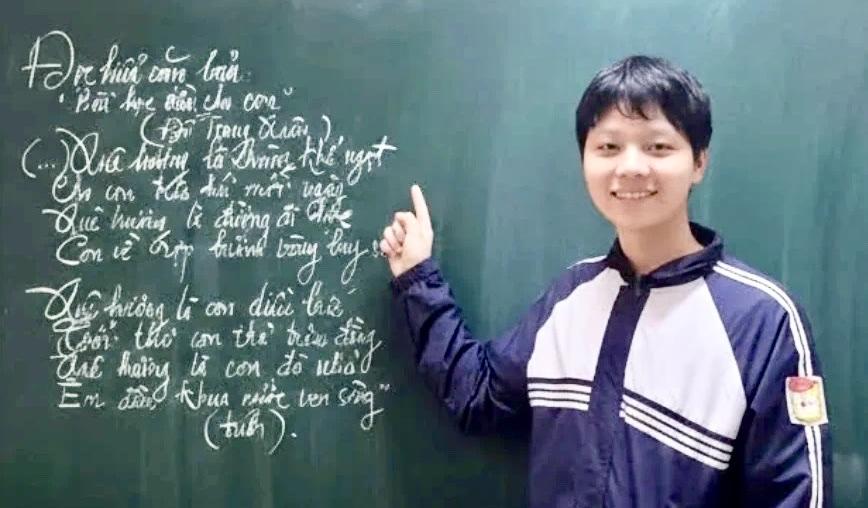 Đọc hiểu văn bản
"Bài học đầu cho con"
(Đỗ Trung Quân)
(...) Quê hương là chùm khế ngọt
Cho con trèo hái mỗi ngày
Quê hương là đường đi học
Con về rợp bướm vàng bay
Quê hương là con diều biếc
Tuổi thơ con thả trên đồng
Quê hương là con đò nhỏ
Êm đềm khua nước ven sông"
(trích).